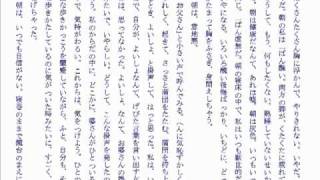 たくさん胸に浮かんで、やりきれない。いやだ。
だ。朝の私は一ばん醜い。両方の脚が、くたくたに疲れ
しまって、もう、何もしたくない。熟睡していないせいか
朝は健康だなんて、あれは嘘。朝は灰色。いつも
一ばん虚無だ。朝の寝床の中で、私はいつも厭世的
なる。いろいろ醜い後悔ばっかり、いちどに、どっ
まって胸をふさぎ、身悶えしちゃう。
朝は、意地悪。
「お父さん」と小さい声で呼んでみる。へんに気恥ずかし
れしく、起きて、さっさと蒲団をたたむ。蒲団を持ち
とき、よいしょ、と掛声して、はっと思った。私は、い
自分が、よいしょなんて、げびた言葉を言い出す
は、思ってなかった。よいしょ、なんて、お婆さんの
いで、いやらしい。どうして、こんな掛声を発したの
う。私のからだの中に、どこかに、婆さんがひとつ
で、気持がわるい。これからは、気をつけよう。ひと
な歩き恰好を顰蹙していながら、ふと、自分も、そ
歩きかたしているのに気がついた時みたいに、すごく、
げちゃった。
朝は、いつでも自信がない。寝巻のままで鏡台のまえに